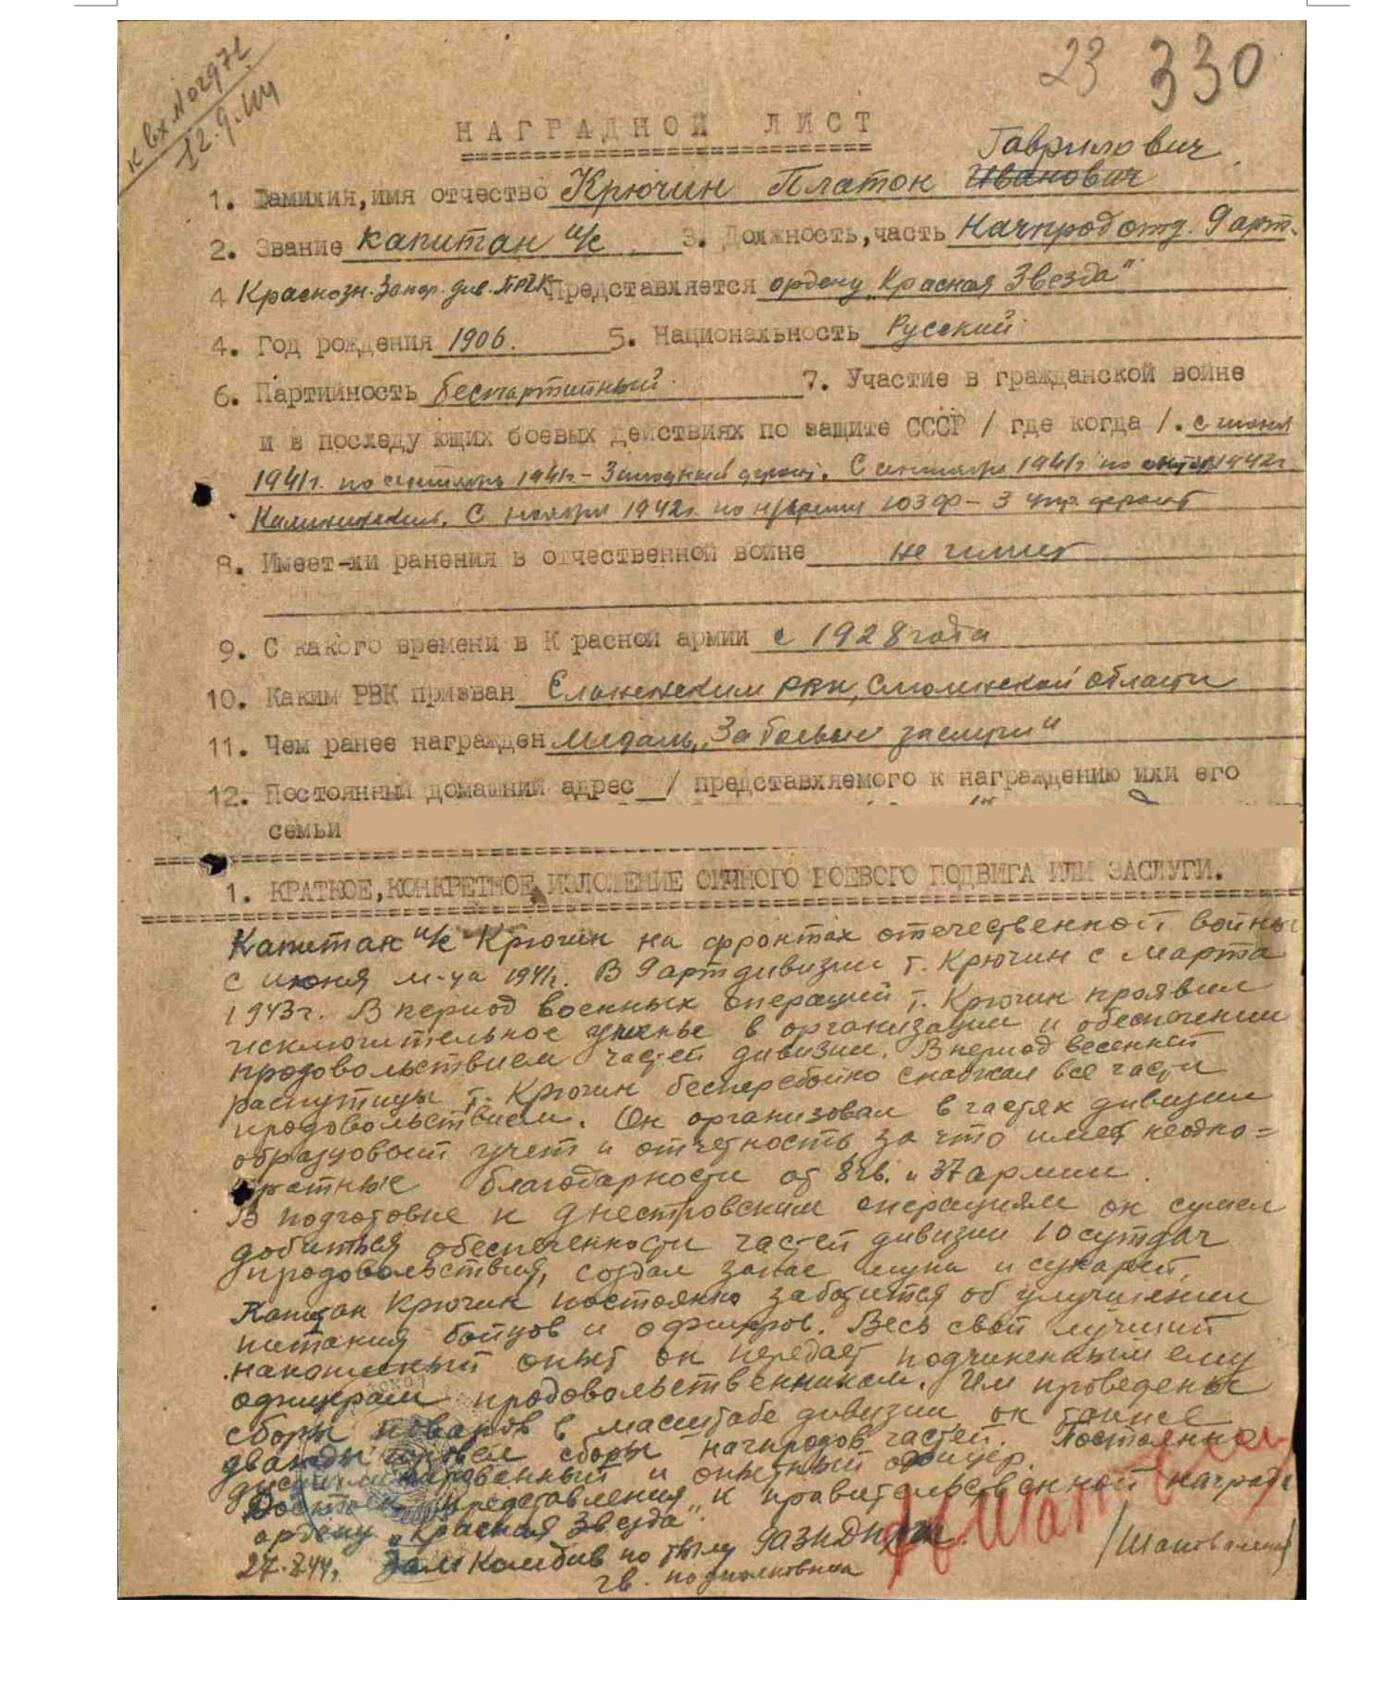 к вх №02972
12.9.44
23 330
НАГРАДНОЙ ЛИСТ
Гаврилович
1. Фамилия, имя отчество Крючин Платон Иванович
2. Звание капитан и/с 3. Должность, часть Начпродотд. 9 арт.
4 Краснозн. Запор. див. ПРГК Представляется ордену „Красная Звезда"
4. Год рождения 1906. 5. Национальность Русский
6. Партийность беспартийный 7. Участие в гражданской войне
и в последу ющих боевых действиях по защите СССР / где когда /. с июня
1941г. по сентябрь 1941г. – Западный фронт. С сентября 1941г по октяб 1942г
Калининский. С ноября 1942г. по н/время ЮЗФ – 3 Укр. фронт
8. Имеет-ли ранения в отчественной войне не имеет
9. С какого времени в К расной армии с 1928 года
10. Каким РВК призван РВК, Смоленской области
11. Чем ранее награжден Медаль „За боевые заслуги"
12. Постоянный домашний адрес / представляемого к награждению или его
семьи
1. КРАТКОЕ, КОНКРЕТНОЕ ИЗЛОЖЕНИЕ ЛИЧНОГО БОЕВОГО ПОДВИГА ИЛИ ЗАСЛУГИ.
Капитан и/с Крючин на фронтах отечественной войны
с июня м-ца 1941г. В 9 артдивизии т. Крючин с марта
1943г. В период военных операций т. Крючин проявил
исключительное уменье в организации и обеспечении
продовольствием частей дивизии. В период весенней
распутицы т. Крючин бесперебойно снабжал все части
продовольствием. Он организовал в частях дивизии
образцовый учет и отчетность за что имет неодно=
кратные благодарности от 8 гв. и 37 армии.
В подготовке к Днестровским операциям он сумел
добиться обеспеченности частей дивизии 10 сутдач
продовольствия, создал запас муки и сухарей.
Капитан Крючин постоянно заботится об улучшении
питания бойцов и офицеров. Весь свой лучший
накопленный опыт он передает подчиненным ему
офицерам продовольственникам. Им проведены
сборы поваров в масштабе дивизии, он также
дважды провел сборы начпродов частей. Постоянно
дисциплинированный и опытный офицер.
Достоин представления к правительственной награде
ордену „Красная Звезда".
27.8.44. Зам Комдив по тылу 9АЗКДРГК
гв. подполковник